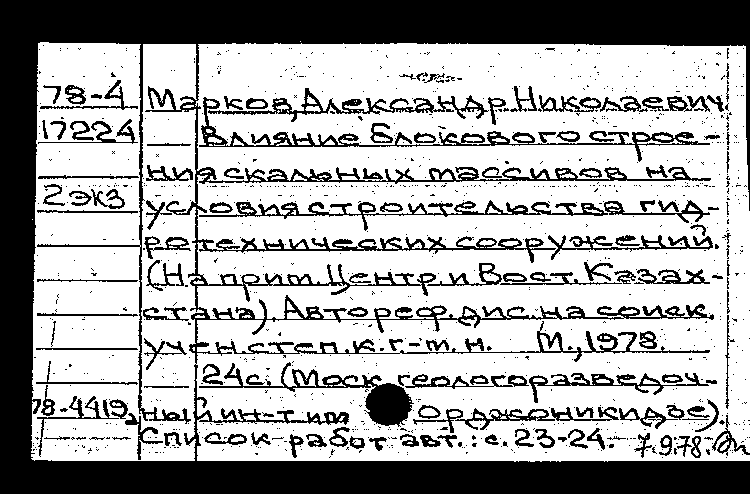 78-4 Марков, Александр Николаевич
17224 Влияние блокового строе-
ния скальных массивов на
2 экз условия строительства гид-
ротехнических сооружений.
(На прим. Центр. и Вост. Казах-
стана). Автореф. дис. на соиск.
учен. степ. к. г.-м. н. М., 1978.
24с. (Моск геологоразведоч-
78-4419 ный ин-т им орджоникидзе).
Список работ авт.: с. 23-24. 7.9.78.